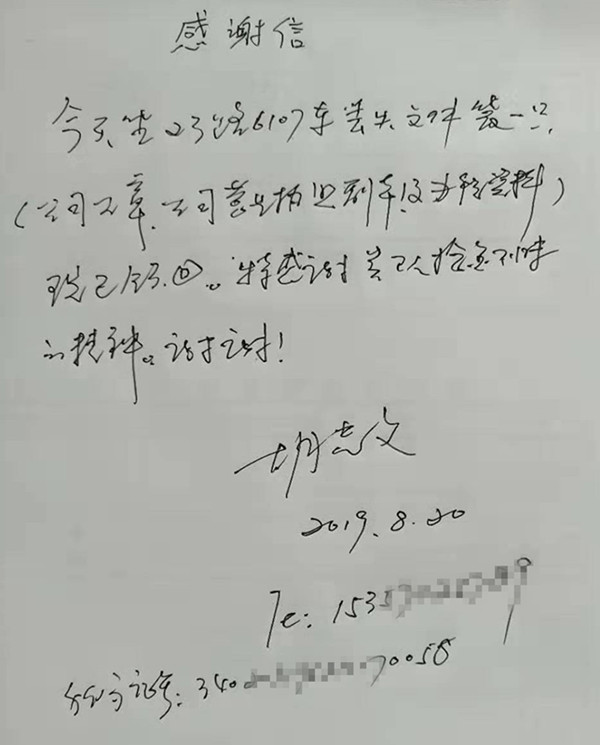 感谢信
今天坐23路6107车丢失文件袋一只,
(公司公章、公司营业执照副本及办
现已领回。特感谢贵司人拾金不昧
的精神。谢谢谢谢!
胡志文
2019.8.20
Te: 153
份证号: 340 70058